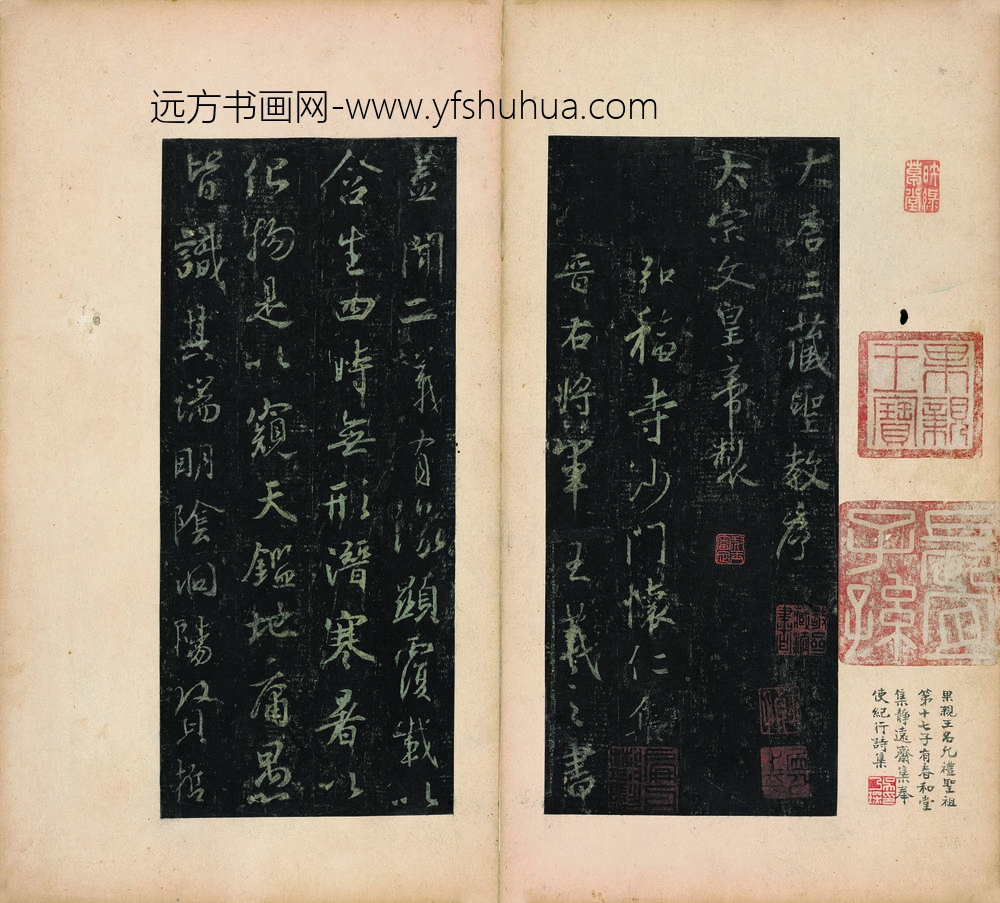 远方书画网-www.yfshuhua.com
大唐三藏聖教序
太宗文皇帝製
弘福寺沙門懷仁集
晉右將軍王羲之書
蓋聞二儀有像顯覆載以
含生四時無形潛寒暑以
化物是以窺天鑑地庸愚
皆識其端明陰洞陽賢哲
果親王寶
果親王名允禮聖祖
第十七子有春和堂
集靜遠齋集奉
使紀行詩集